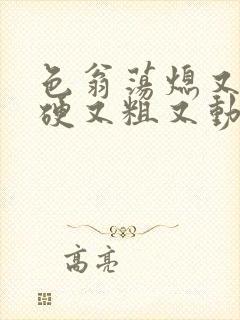 色翁荡熄又
硬又粗又動
高亮